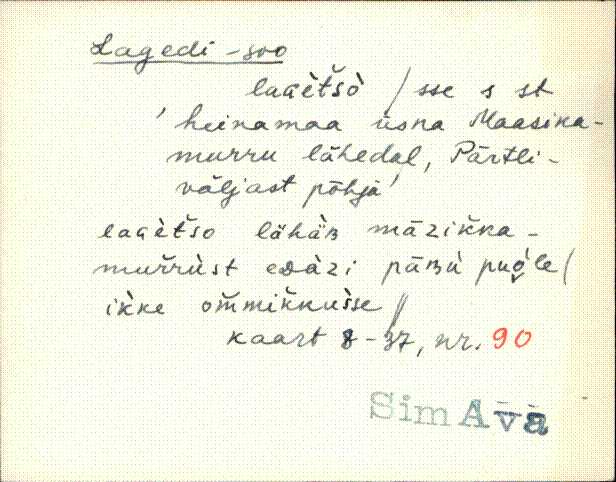 Lagedi-soo
laɢèt̆šò /sse s st
'heinamaa üsna Maasika-
murru lähedal, Pärtli-
väljast põhja'
laɢèt̆šo lähäʙ māzik̆ka-
mur̆rùst eᴅàzi pāʙù puo̭le/
ìkke om̆mik̆kuìsse //
kaart 8-37, nr. 90
Sim Ava